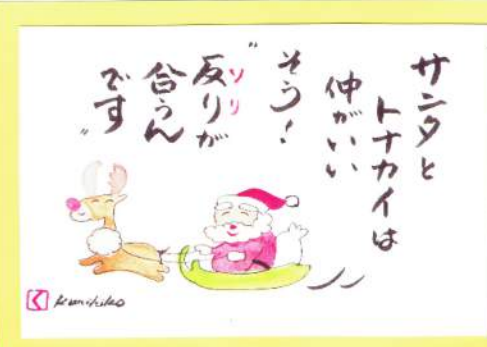 サンタと
トナカイは
仲がいい
そう!
“反りが
ソリ
合うん
です”
く
Kunihiko